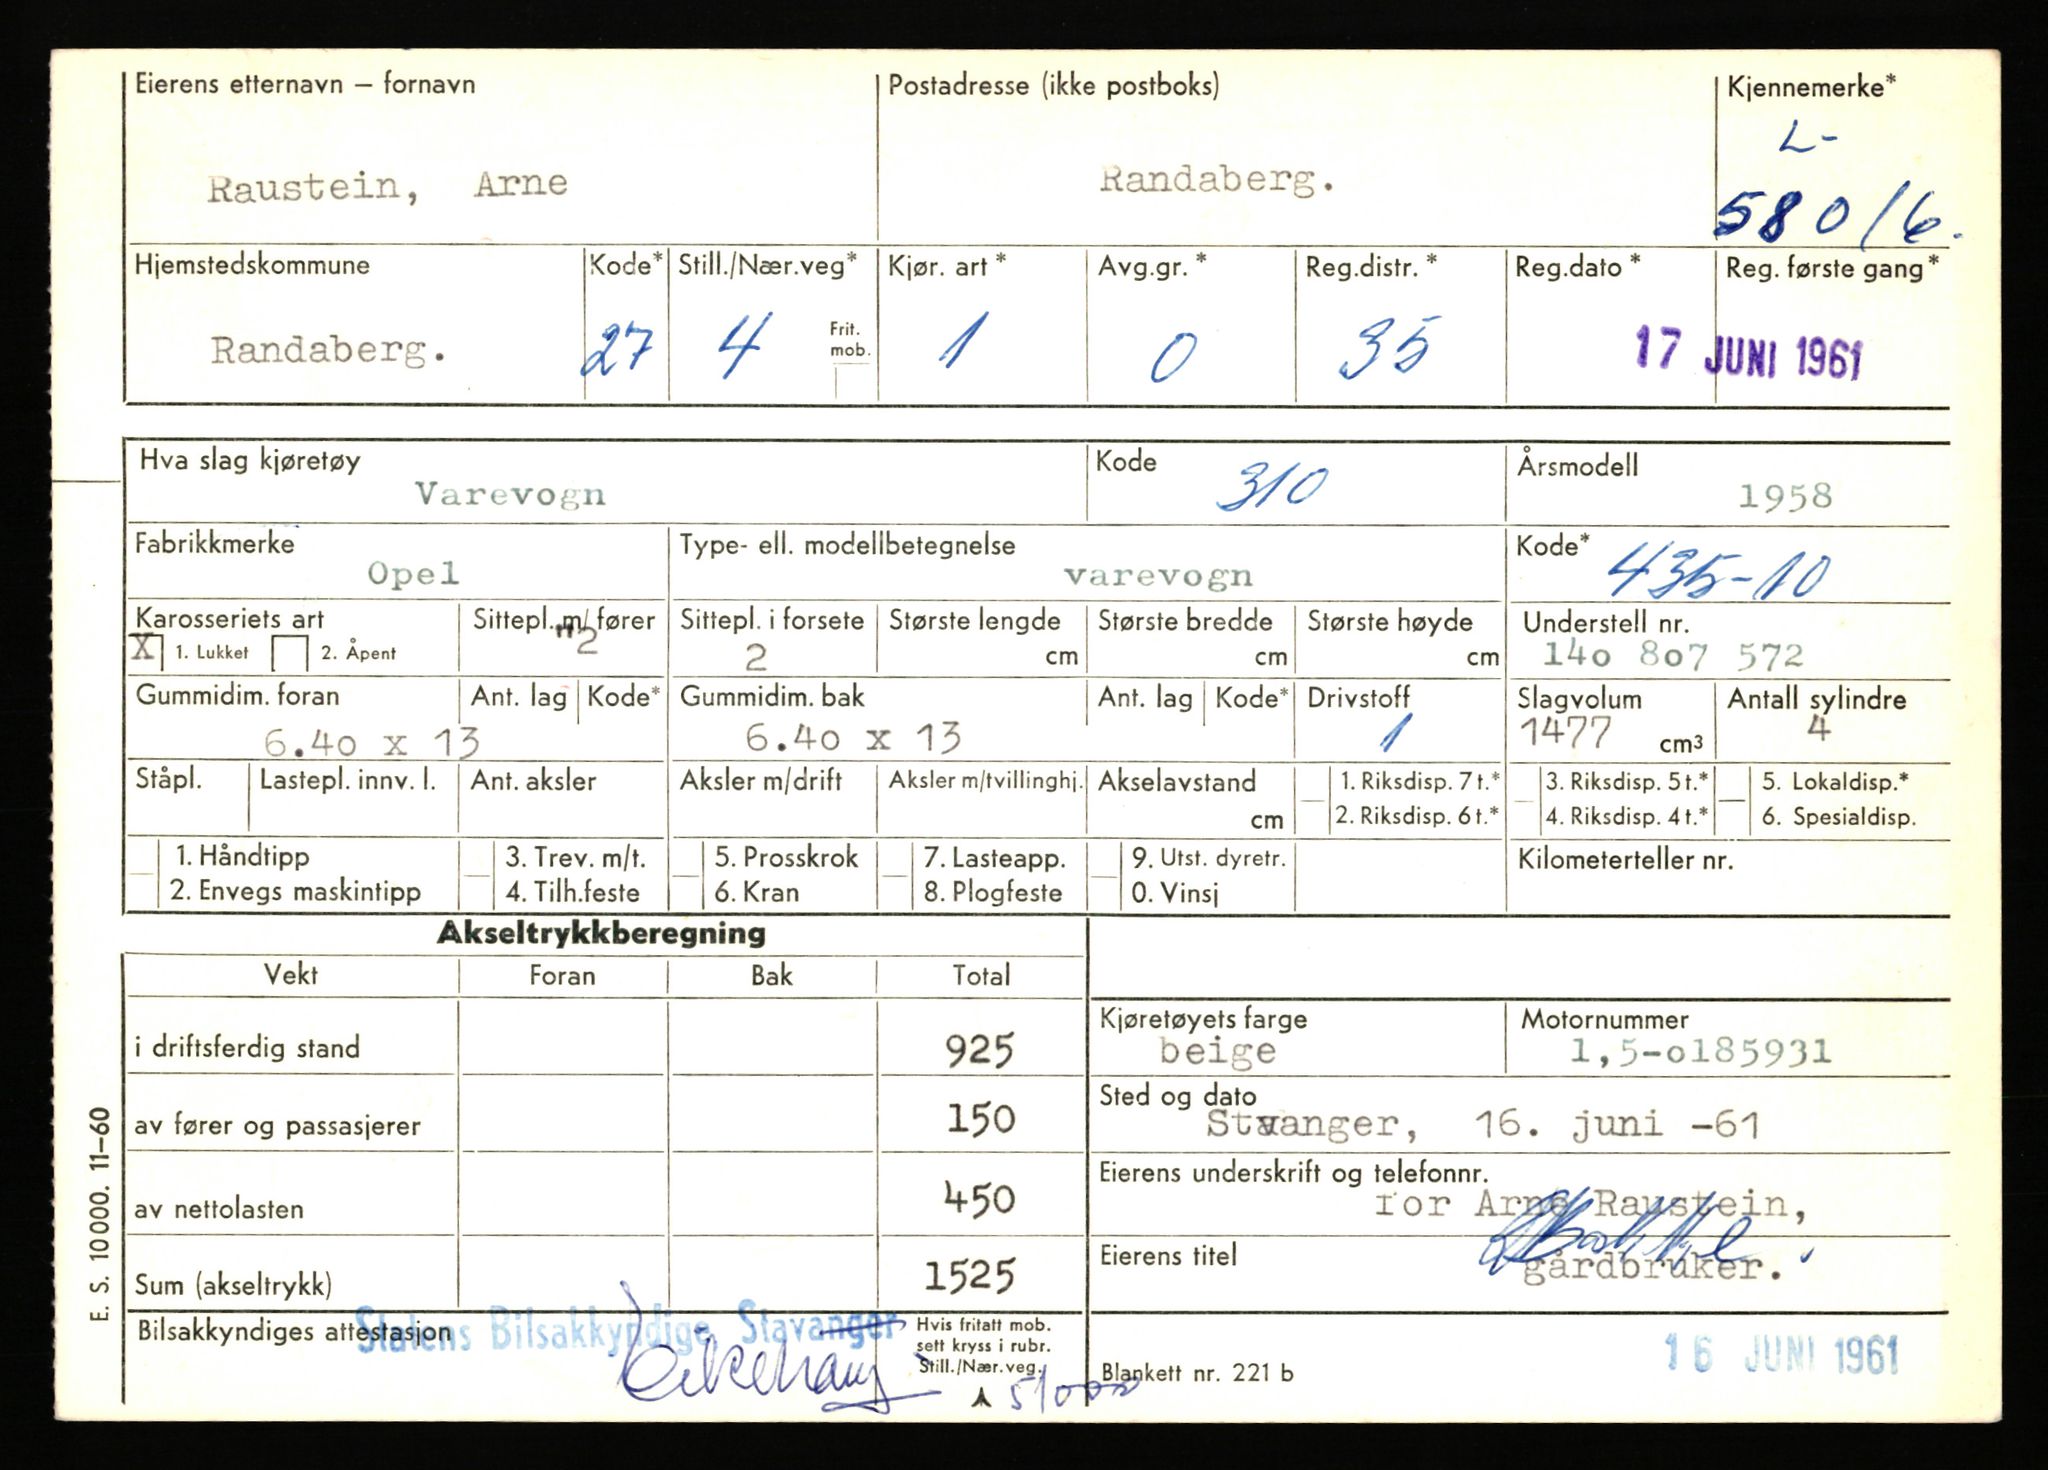 Eierens etternavn – fornavn Postadresse (ikke postboks) Kjennemerke*
L-
Raustein, Arne Randaberg.
58016.
Hjemstedskommune Kode* Still./Nær.veg* Kjør. art* Avg.gr.* Reg.distr.* Reg.dato* Reg. første gang*
Randaberg. 27 4 Frit. mob. 1 0 35 17 JUNI 1961
Hva slag kjøretøy Kode Årsmodell
Varevogn 310 1958
Fabrikkmerke Type- ell. modellbetegnelse Kode*
Opel varevogn 435-10
Karosseriets art Sittepl. m/fører Sittepl. i forsete Største lengde Største bredde Største høyde Understell nr.
X 1. Lukket 2. Åpent "2 2 cm cm cm 140 807 572
Gummidim. foran Ant. lag Kode* Gummidim. bak Ant. lag Kode* Drivstoff Slagvolum Antall sylindre
6.40 x 13 6.40 x 13 1 1477 cm³ 4
Ståpl. Lastepl. innv. l. Ant. aksler Aksler m/drift Aksler m/tvillinghj. Akselavstand 1. Riksdisp. 7 t.* 3. Riksdisp. 5 t.* 5. Lokaldisp.*
cm 2. Riksdisp. 6 t.* 4. Riksdisp. 4 t.* 6. Spesialdisp.
1. Håndtipp 3. Trev. m/t. 5. Prosskrok 7. Lasteapp. 9. Utst. dyretr. Kilometerteller nr.
2. Envegs maskintipp 4. Tilh.feste 6. Kran 8. Plogfeste 0. Vinsj
Akseltrykkberegning
Vekt Foran Bak Total
Kjøretøyets farge Motornummer
i driftsferdig stand 925 beige 1,5-0185931
Sted og dato
av fører og passasjerer 150 Stavanger, 16. juni -61
Eierens underskrift og telefonnr.
av nettolasten 450 for Arne Raustein,
Eierens titel
Sum (akseltrykk) 1525 gårdbruker.
Bilsakkyndiges attestasjon Statens Bilsakkyndige Stavanger
Hvis fritatt mob.
sett kryss i rubr.
Still./Nær.veg.
51000
Blankett nr. 221 b
16 JUNI 1961
E. S. 10000. 11–60